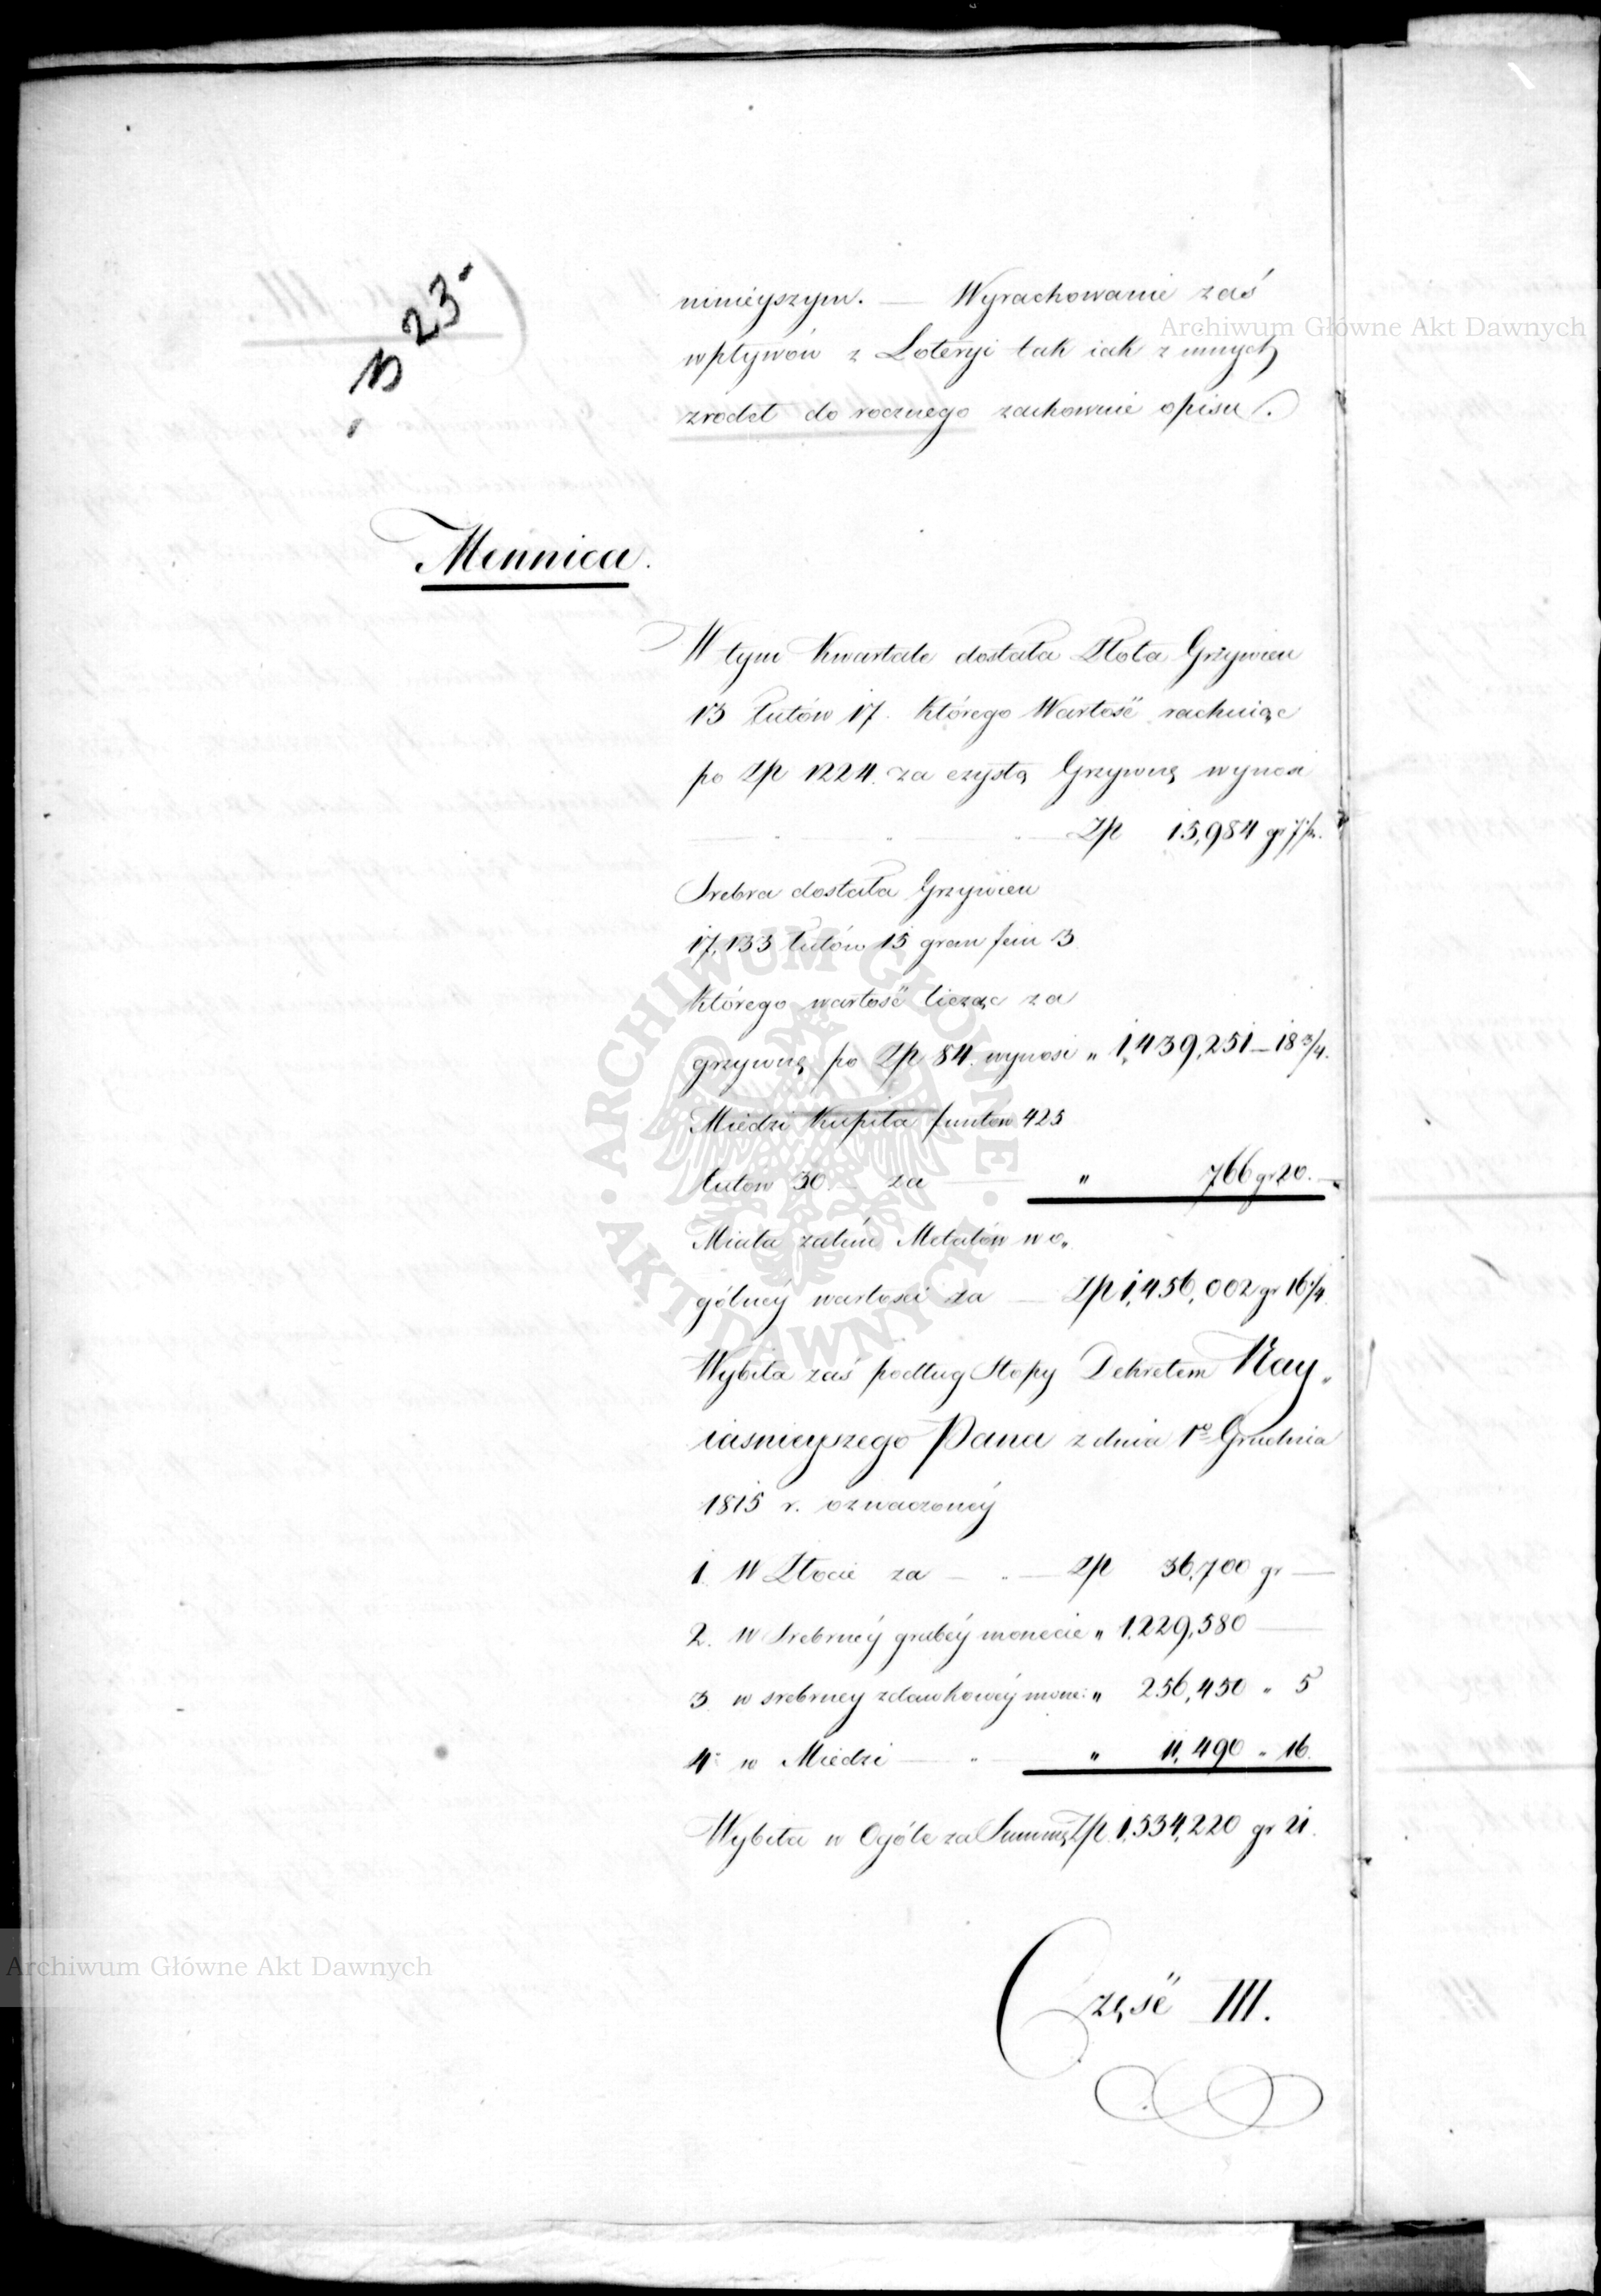 23.
ninieyszym. — Wyrachowanie zaś
Archiwum Główne Akt Dawnych
wpływów z Loteryi tak iak z innych
zrodeł do rocznego zachowuie opisu.
Mennica.
W tym Kwartale dostała Złota Grzywien
13 łutów 17. którego Wartość rachuiąc
po Zp 1224. za czystą Grzywnę wynosi
Zp 15,984 gr 7½.
Srebra dostała Grzywien
17,133 łutów 15 gran fein 3
którego wartość licząc za
grzywnę po Zp 84. wynosi „ 1,439,251 — 18¾.
Miedzi Kupiła funtów 425
łutów 30. za — „ 766 gr 20. —
Miała zatém Metalów w o„
gólnéy wartości za — Zp 1,456,002 gr 16¼
Wybiła zaś podług Stopy Dekretem Nay„
iaśnieyszego Pana z dnia 1o Grudnia
1815 r. oznaczonéy
1. W Złocie za — „ — Zp 36,700 gr —
2. W Srebrnéy grubéy monecie „ 1,229,580 —
3 w srebrney zdawkowéy mone: „ 256,450 „ 5
4o w Miedzi — „ — „ 11,490 „ 16.
Wybiła w Ogóle za Summę Zp. 1,534,220 gr 21.
Archiwum Główne Akt Dawnych
Część III.
ARCHIWUM GŁÓWNE
AKT DAWNYCH